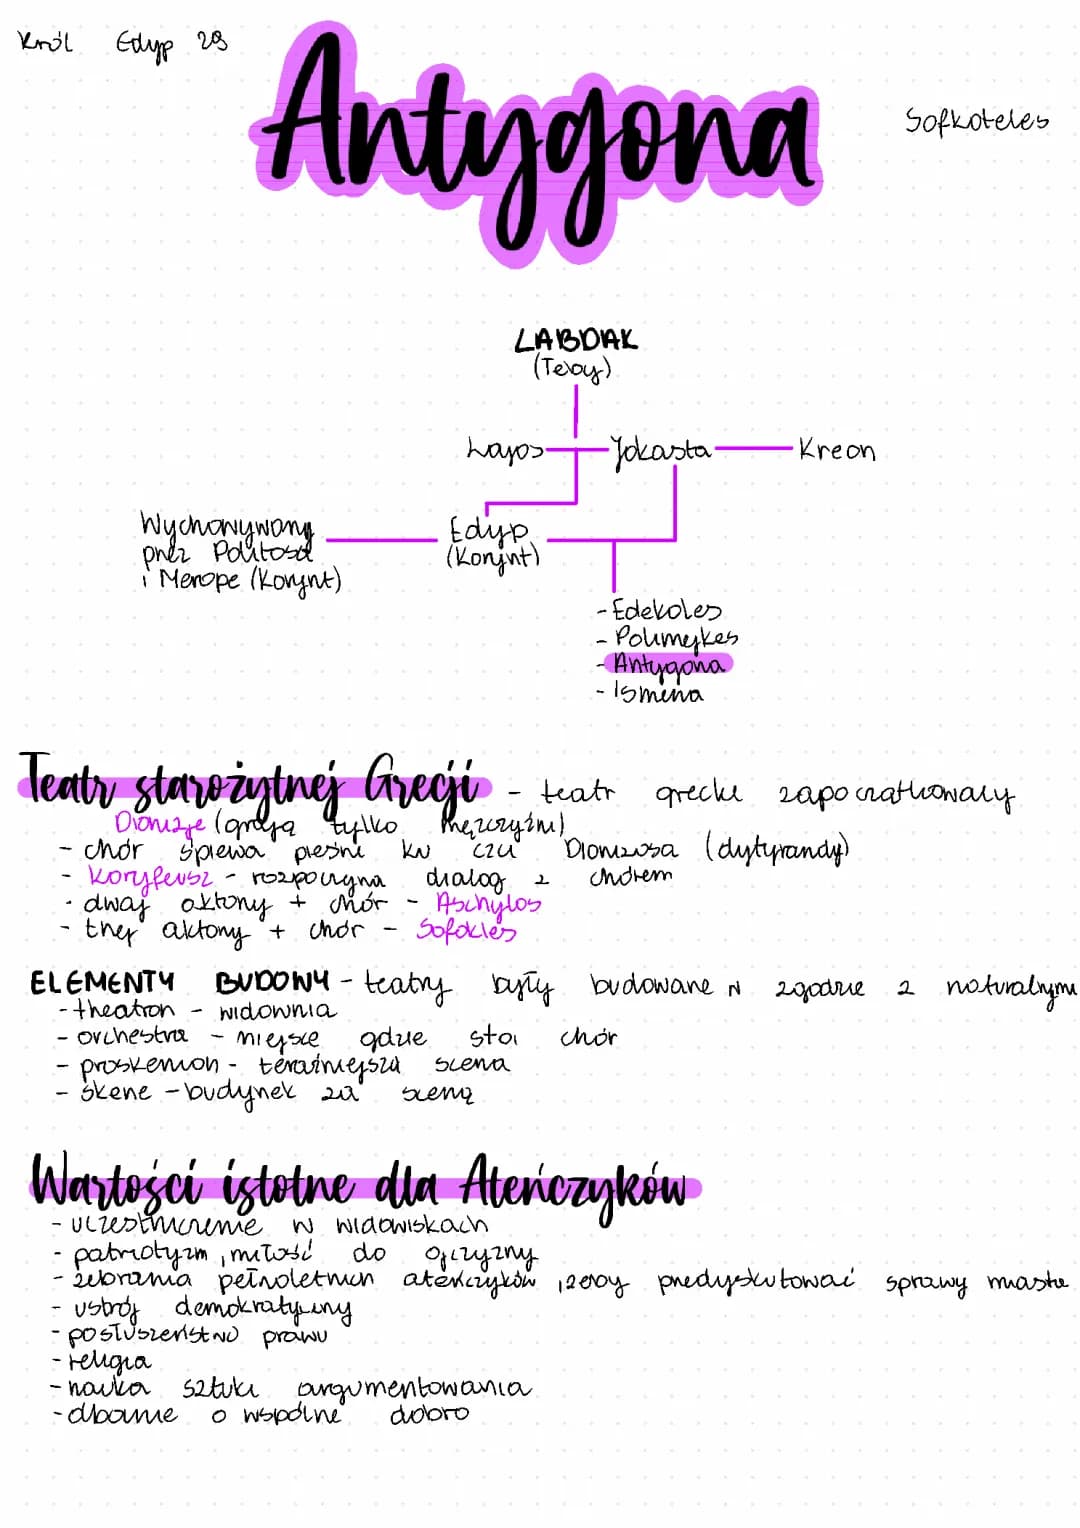 Król Edyp 28
Antygona
Sofkoteles
LABDAK
(Teby)
Lajos Jokasta Kreon
Wychowywany
przez Politosa
i Merope (Korynt)
Edyp
(Korynt)
- Edekoles
- Polimeykes
- Antygona
- Ismena
Teatr starożytnej Grecji - teatr grecki zapoczątkowały
Dionizje (grają tylko mężczyźni)
- chór śpiewa pieśni ku czci Dionizosa (dytyrandy)
- Koryfeusz - rozpoczyna dialog z chórem
- dwaj aktorzy + chór - Aschylos
- trzej aktorzy + chór - Sofokles
ELEMENTY BUDOWY - teatry były budowane w zgodzie z naturalnymi
- theatron - widownia
- orchestra - miejsce gdzie stoi chór
- proskenion - teraźniejsza scena
- skene - budynek za sceną
Wartości istotne dla Ateńczyków
- uczestniczenie w widowiskach
- patriotyzm, miłość do ojczyzny
- zebrania pełnoletnich ateńczyków, żeby przedyskutować sprawy miasta
- ustrój demokratyczny
- posłuszeństwo prawu
- religia
- nauka sztuki argumentowania
- dbanie o wspólne dobro